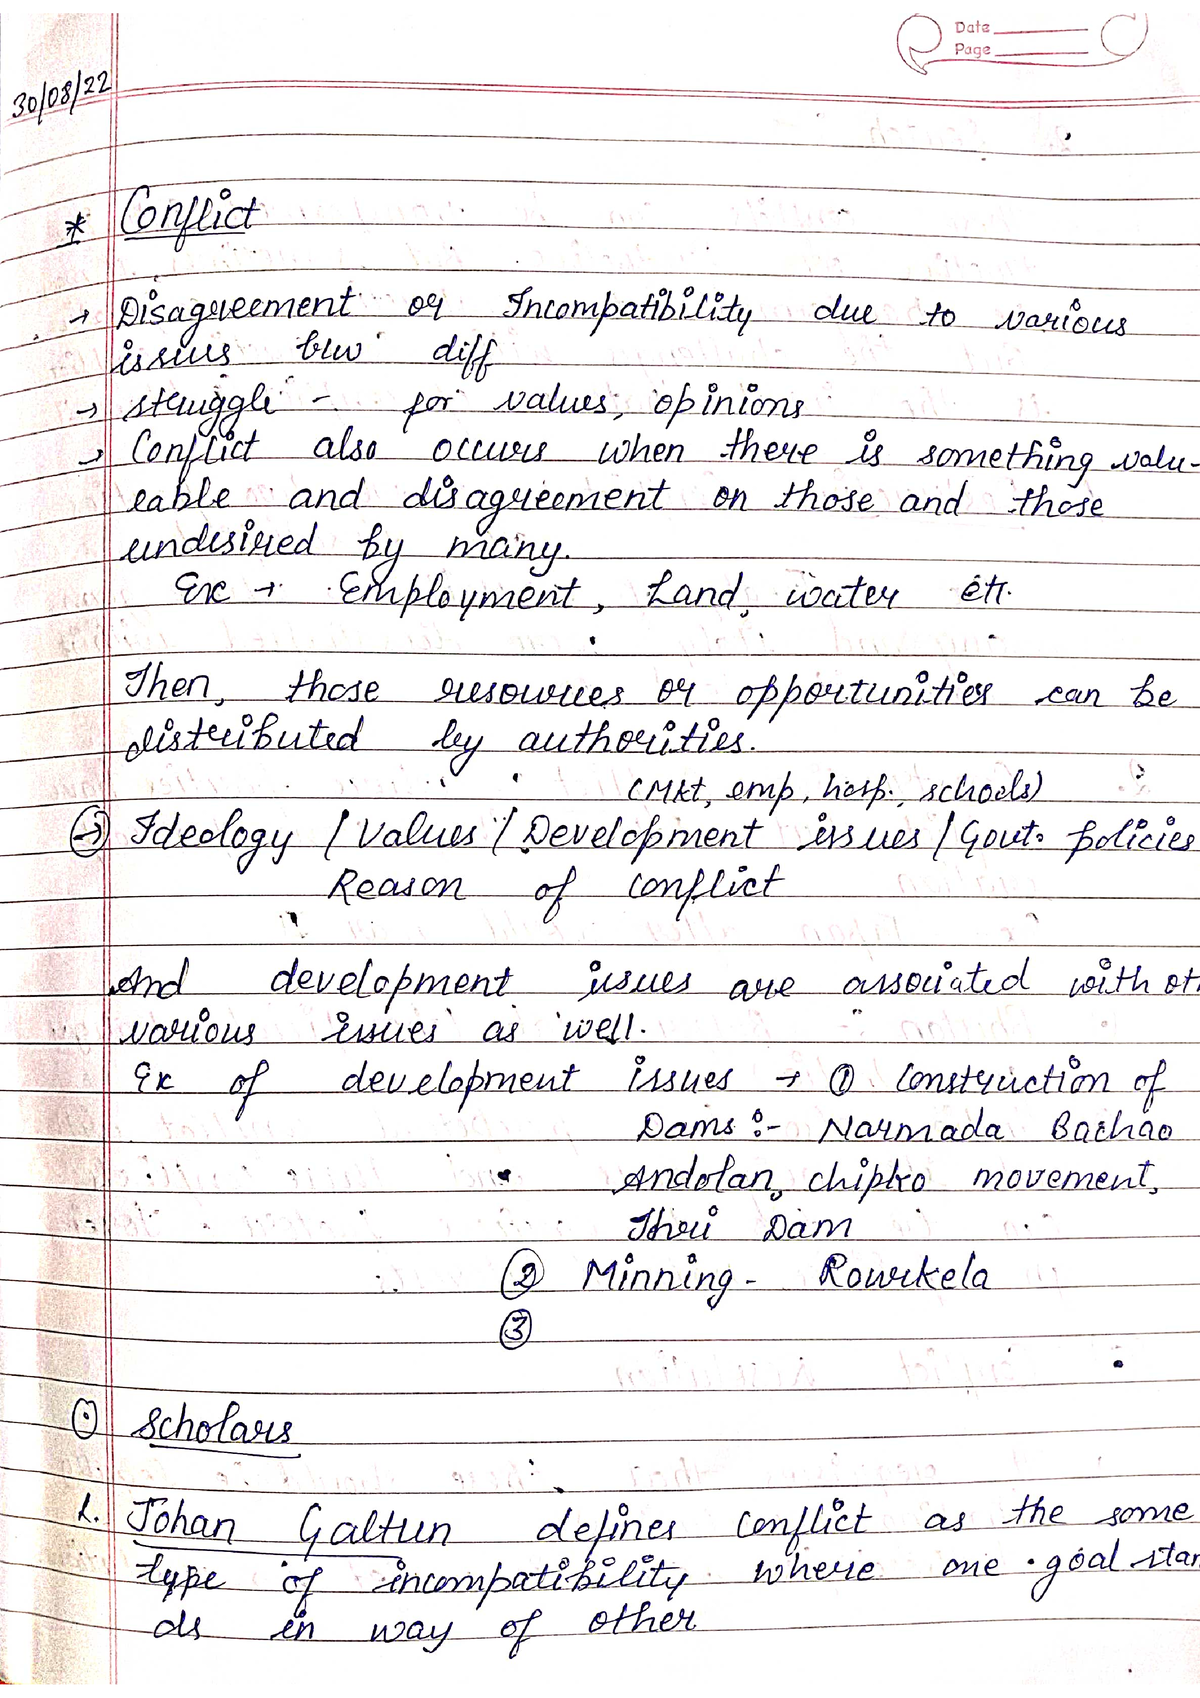 Date
Page
30/08/22
* Conflict
→ Disagreement or Incompatibility due to various
issues b/w diff
→ struggle - for values, opinions
→ Conflict also occurs when there is something valu-
eable and disagreement on those and those
undesired by many.
Ex → Employment, Land, water etc.
Then, those resources or opportunities can be
distributed by authorities.
(Mkt, emp, hosp., schools)
→ Ideology / Values / Development issues / Govt. policies
Reason of conflict
And development issues are associated with ot
various issues as well.
Ex of development issues → ① Construction of
Dams :- Narmada Bachao
Andolan, chipko movement,
Theri Dam
② Minning - Rourkela
③
⊙ Scholars
1. Johan Galtun defines Conflict as the some
type of incompatibility where one goal stan
ds in way of other